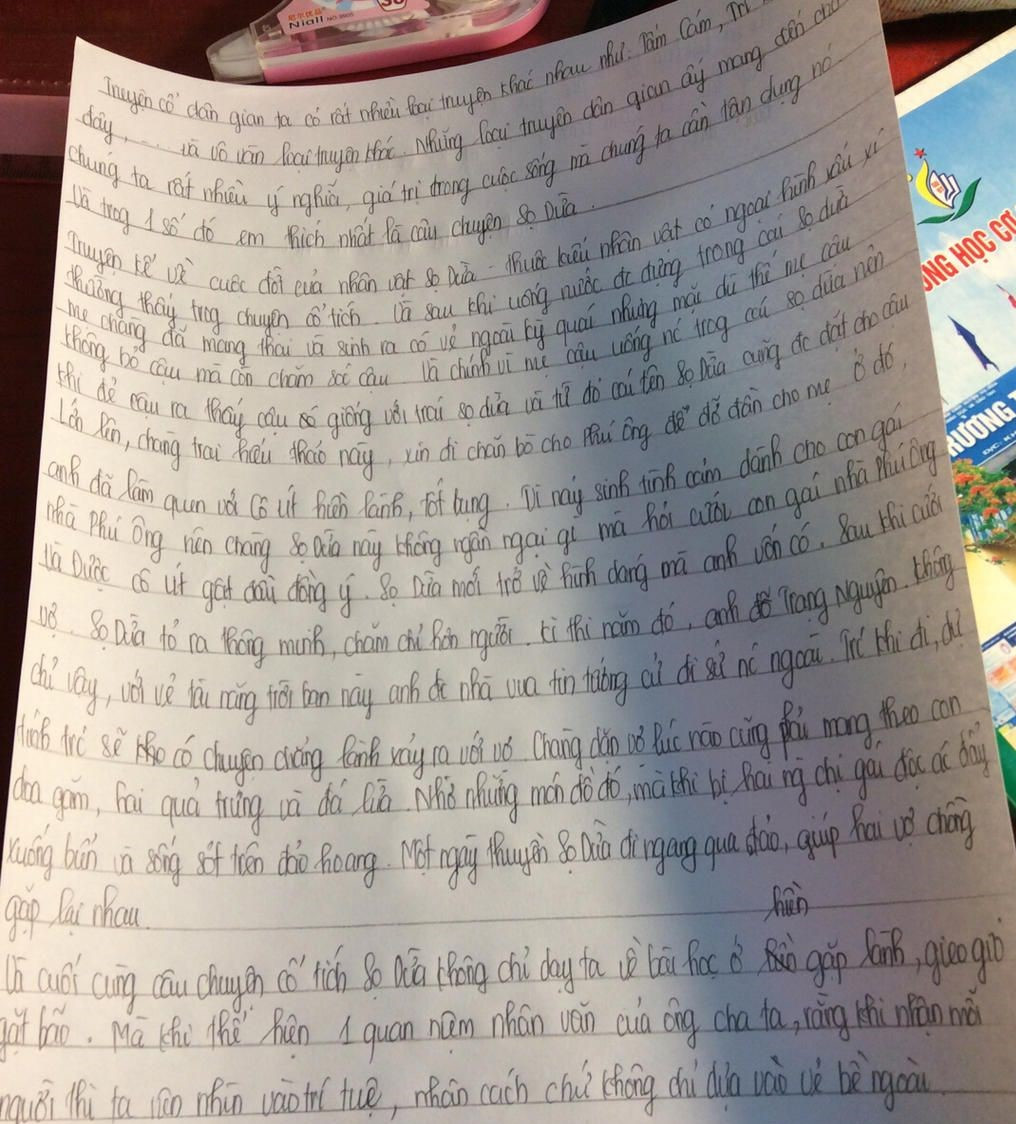 Niall NO.8905
Truyện cổ dân gian ta có rất nhiều loại truyện khác nhau như: Tấm Cám,
dây, .... và vô vàn loại truyện khác. Những loại truyện dân gian ấy mang đến cho
chúng ta rất nhiều ý nghĩa, giá trị trong cuộc sống mà chúng ta cần tận dụng nó
Và trog 1 số đó em thích nhất là câu chuyện Sọ Dừa.
Truyện kể về cuộc đời của nhân vật Sọ Dừa - thuộc kiểu nhân vật có ngoại hình xấu xí
thường thấy trog chuyện cổ tích. Và sau khi uống nước đc đựng trong cái sọ dừa
mẹ chàng đã mang thai và sinh ra có vẻ ngoài kỳ quái nhưng mặc dù thế mẹ cậu
không bỏ cậu mà còn chăm sóc cậu. Và chính vì mẹ cậu uống nc trog cái sọ dừa nên
khi đẻ cậu ra thấy cậu có giống với trái sọ dừa và từ đó cái tên Sọ Dừa cũng đc đặt cho cậu
Lớn lên, chàng trai hiếu thảo này, xin đi chăn bò cho Phú ông để đỡ đần cho mẹ. Ở đó,
anh đã làm quen với Cô út hiền lành, tốt bụng. Vì nảy sinh tình cảm dành cho con gái
nhà Phú Ông nên chàng Sọ Dừa này không ngần ngại gì mà hỏi cưới con gái nhà Phú Ông
Và Được cô út gật đầu đồng ý. Sọ Dừa mới trở về hình dáng mà anh vốn có. Sau khi cưới
vợ. Sọ Dừa tỏ ra thông minh, chăm chỉ hơn người. Kì thi năm đó, anh đỗ Trạng Nguyên. Không
chỉ vậy, với vẻ tài năng trời ban này anh đc nhà vua tin tưởng cử đi sứ nc ngoài. Trc khi đi, dự
tính trc sẽ có chuyện chẳng lành xảy ra với vợ. Chàng dặn vợ lúc nào cũng phải mang theo con
dao găm, hai quả trứng và đá lửa. Nhờ những món đồ đó, mà khi bị hai ng chị gái độc ác đẩy
xuống biển và sống sót trên đảo hoang. Một ngày thuyền Sọ Dừa đi ngang qua đảo, giúp hai vợ chồng
gặp lại nhau.
hiền
Và cuối cùng câu chuyện cổ tích Sọ Dừa không chỉ dạy ta về bài học ở gặp lành, gieo gió
gặt bão. Mà khi thể hiện 1 quan niệm nhân văn của ông cha ta, rằng khi nhận mỗi
người thì ta nên nhìn vào trí tuệ, nhân cách chứ không chỉ dựa vào vẻ bề ngoài.
NG HỌC CƠ
RƯỜNG T